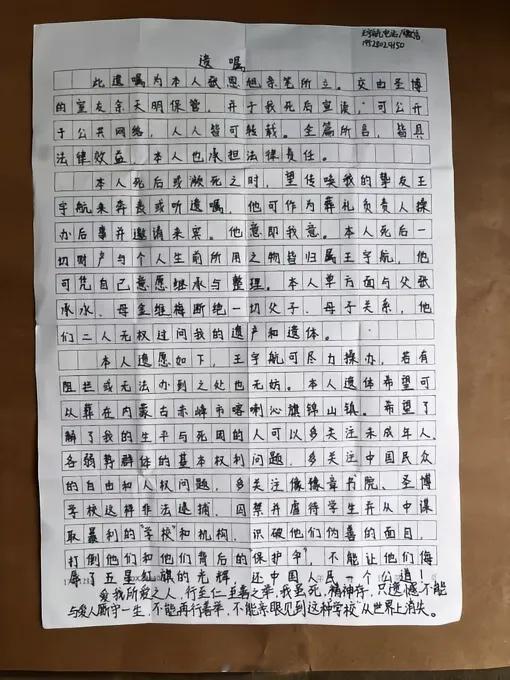 王宇航电话/微信
遗嘱
此遗嘱为本人张恩旭亲笔所立。交由圣博
的室友余天明保管，并于我死后宣读，可公开
于公共网络，人人皆可转载。全篇所言，皆具
法律效益，本人也承担法律责任。
本人死后或濒死之时，望传唤我的挚友王
宇航来奔丧或听遗嘱，他可作为葬礼负责人操
办后事并邀请来宾。他意即我意。本人死后一
切财产与个人生前所用之物皆归属王宇航，他
可凭自己意愿继承与整理。本人单方面与父张
承水、母金维梅断绝一切父子、母子关系，他
们二人无权过问我的遗产和遗体。
本人遗愿如下，王宇航可尽力操办，若有
阻拦或无法办到之处也无妨。本人遗体希望可
以葬在内蒙古赤峰市喀喇沁旗锦山镇。希望了
解了我的生平与死因的人可以多关注未成年人、
各弱势群体的基本权利问题，多关注中国民众
的自由和人权问题，多关注像豫章书院、圣博
学校这样非法逮捕、囚禁并虐待学生并从中谋
取暴利的“学校”和机构，识破他们伪善的面目，
打倒他们和他们背后的“保护伞”，不能让他们侮
辱了五星红旗的光辉，还中国人民一个公道！
爱我所爱之人，行至仁至善之举，我虽死，精神存，只遗憾不能
与爱人厮守一生，不能再行善举，不能亲眼见到这种“学校”从世界上消失。